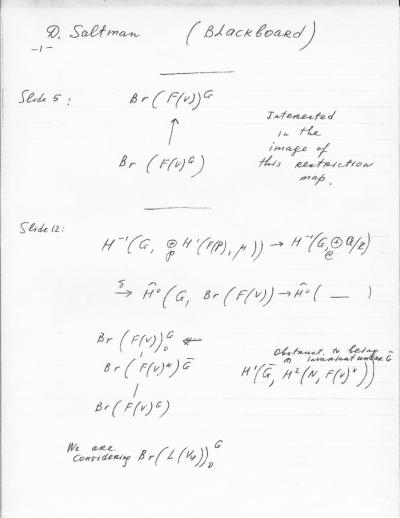 D. Saltman (BLackboard)
-1-
Slide 5:
Br(F(V))^G
↑
Br(F(V)^G)
Interested
in the
image of
this restriction
map.
Slide 12:
H^-1(G, ⊕_P H^1(F(P), μ)) → H^-1(G, ⊕_@ Q/Z)
δ→ Ĥ^0(G, Br(F(V)) → Ĥ^0( — )
Br(F(V))_0^G
Br(F(V)^N)^Ḡ
Br(F(V)^G)
Obstruct. to being
invariant under G
H^1(Ḡ, H^2(N, F(V)^*))
We are
considering Br(L(V_4))_0^G